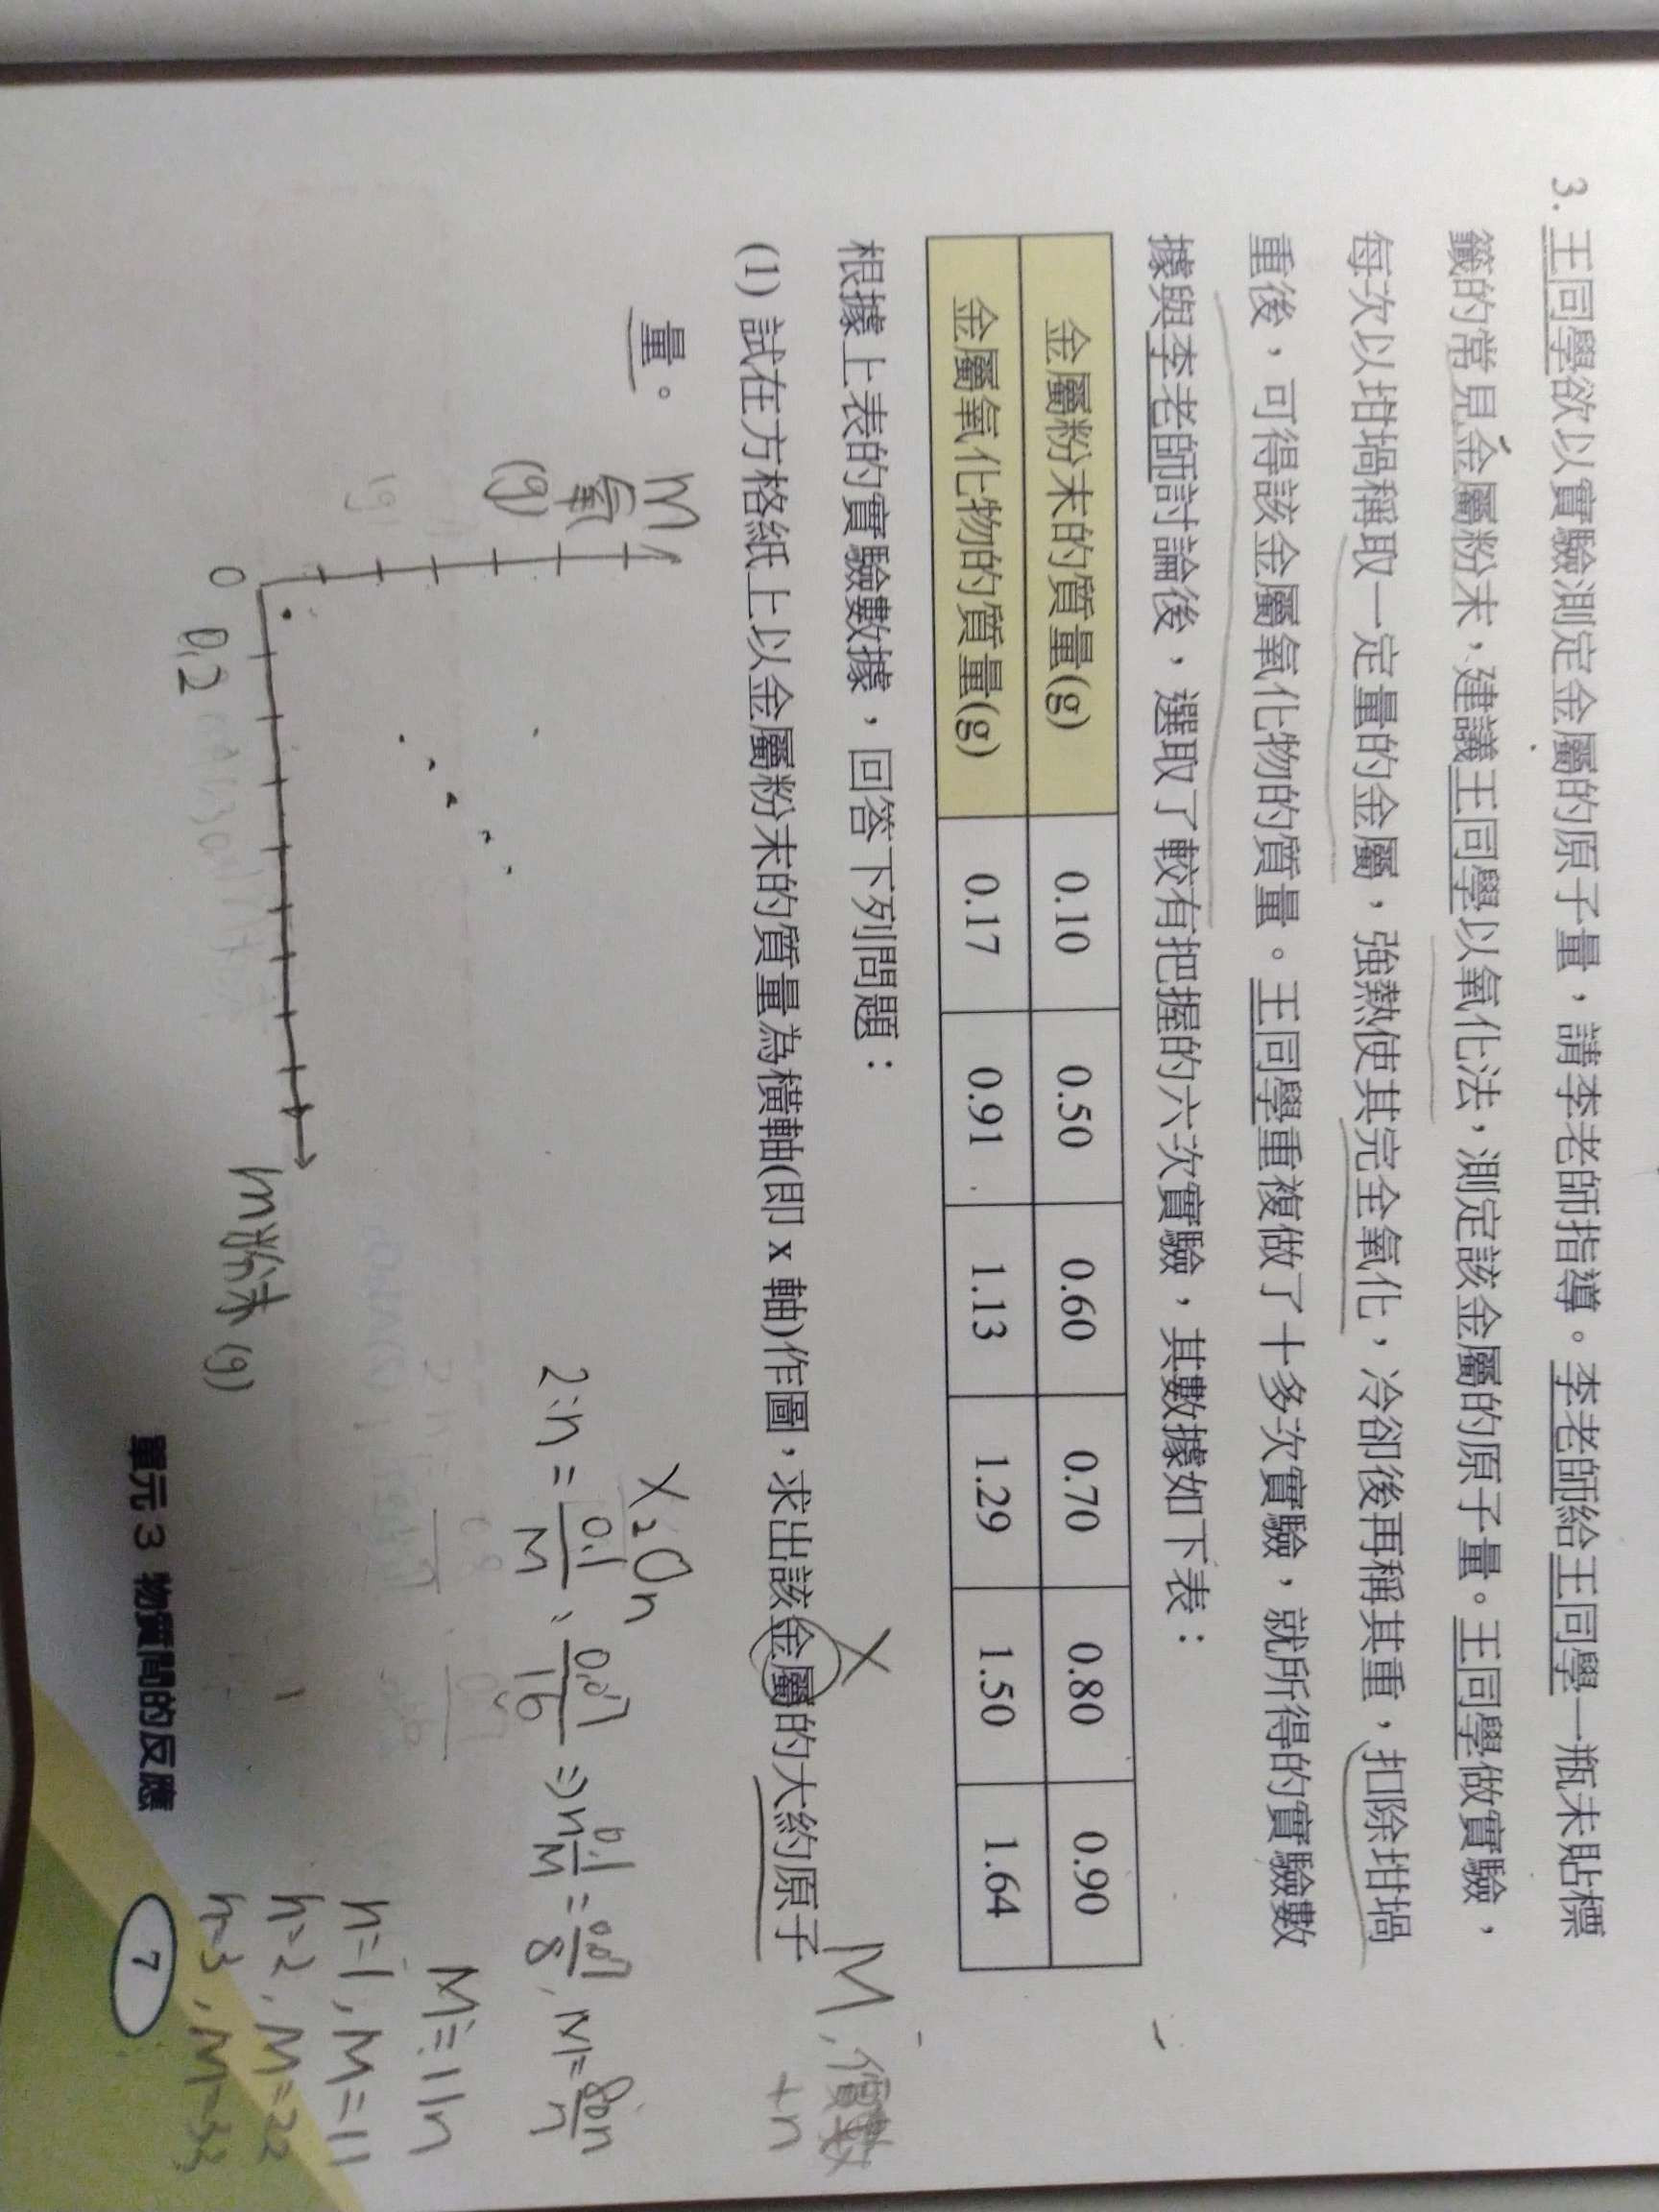 3. 王同學欲以實驗測定金屬的原子量，請李老師指導。李老師給王同學一瓶未貼標
籤的常見金屬粉末，建議王同學以氧化法，測定該金屬的原子量。王同學做實驗，
每次以坩堝稱取一定量的金屬，強熱使其完全氧化，冷卻後再稱其重，扣除坩堝
重後，可得該金屬氧化物的質量。王同學重複做了十多次實驗，就所得的實驗數
據與李老師討論後，選取了較有把握的六次實驗，其數據如下表：
金屬粉末的質量(g) 0.10 0.50 0.60 0.70 0.80 0.90
金屬氧化物的質量(g) 0.17 0.91 1.13 1.29 1.50 1.64
根據上表的實驗數據，回答下列問題：
M，價數
+n
X
(1) 試在方格紙上以金屬粉末的質量為橫軸(即 x 軸)作圖，求出該金屬的大約原子
量。
m
氧
(g)
0
0.2
m粉末(g)
X₂On
2:n = 0.1/M : 0.07/16 ⇒ n 0.1/M = 0.07/8
M≒11n
n=1, M=11
n=2, M=22
n=3, M=33
單元 3 物質間的反應
7